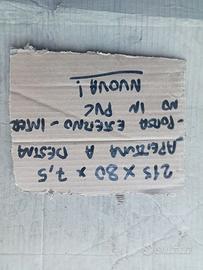 215 X 80 X 7,5
APERTURA A DESTRA
- PORTA ESTERNO - INTER
NO IN PVC
NUOVA!